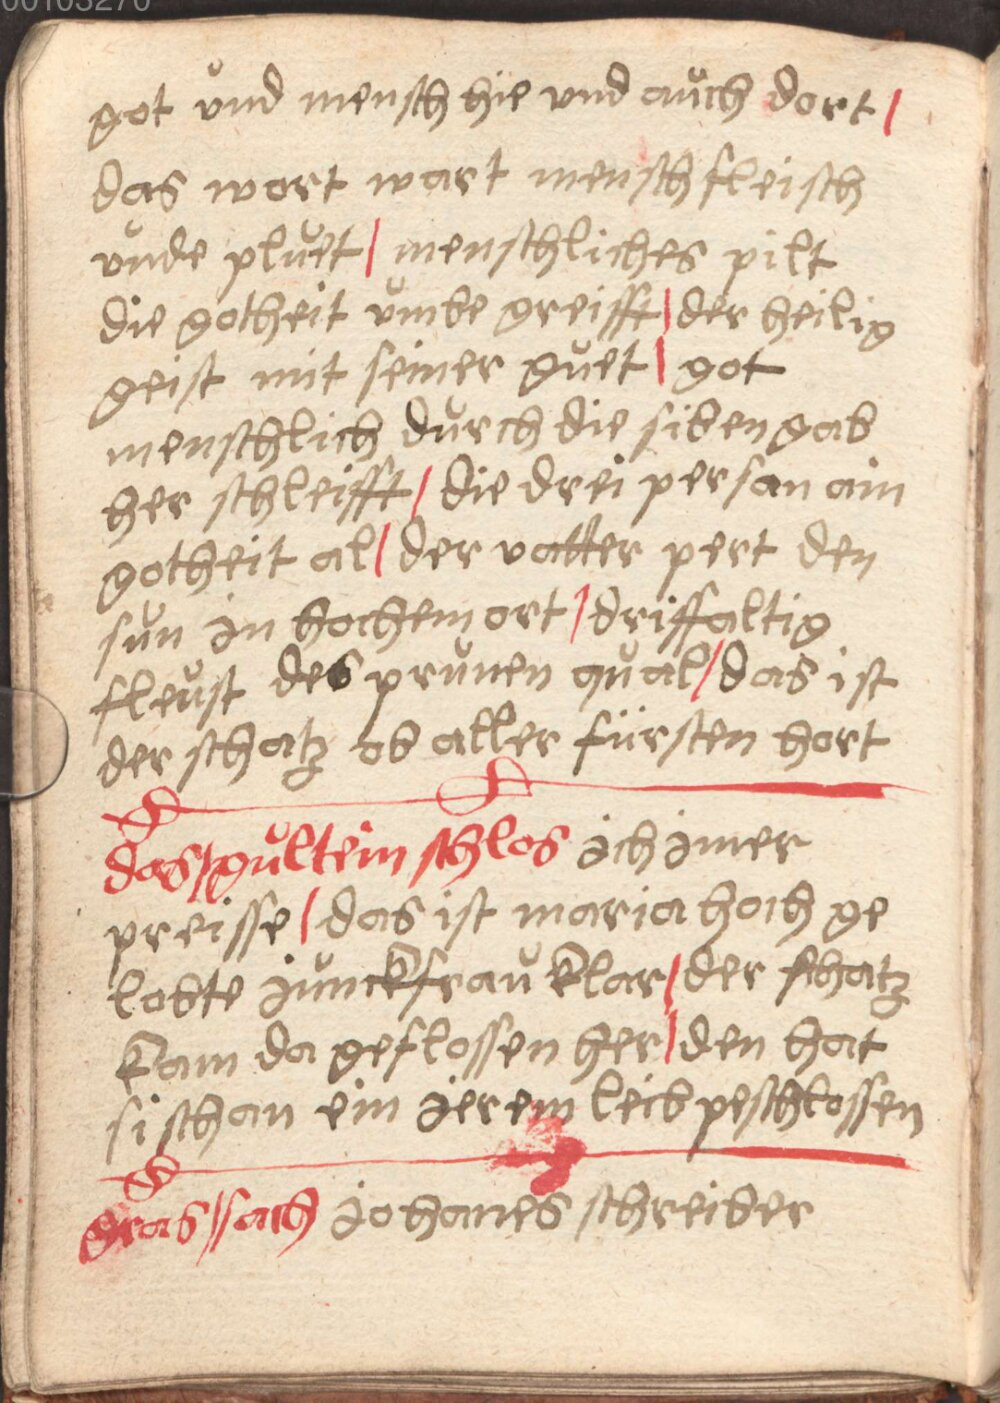 00103270
got vnd mensch hie vnd auch dort /
das wort wart mensch fleisch
vnde pluet / menschliches pilt
die gotheit vmbe greifft / der heilig
geist mit seiner guet / got
menschlich durch die siben gab
her schleifft / die drei person ain
gotheit al / der vatter pert den
sun in hochem ort / driffaltig
fleust des prunen qual / das ist
der schatz ob aller fürsten hort
das / gultein schlos ich imer
preisse / das ist maria hoch ge
lobte junckfrau klar / der schatz
kam da geflossen her / den hat
si schan ein ierem leib peschlossen
gros / sach iohanes schreiber